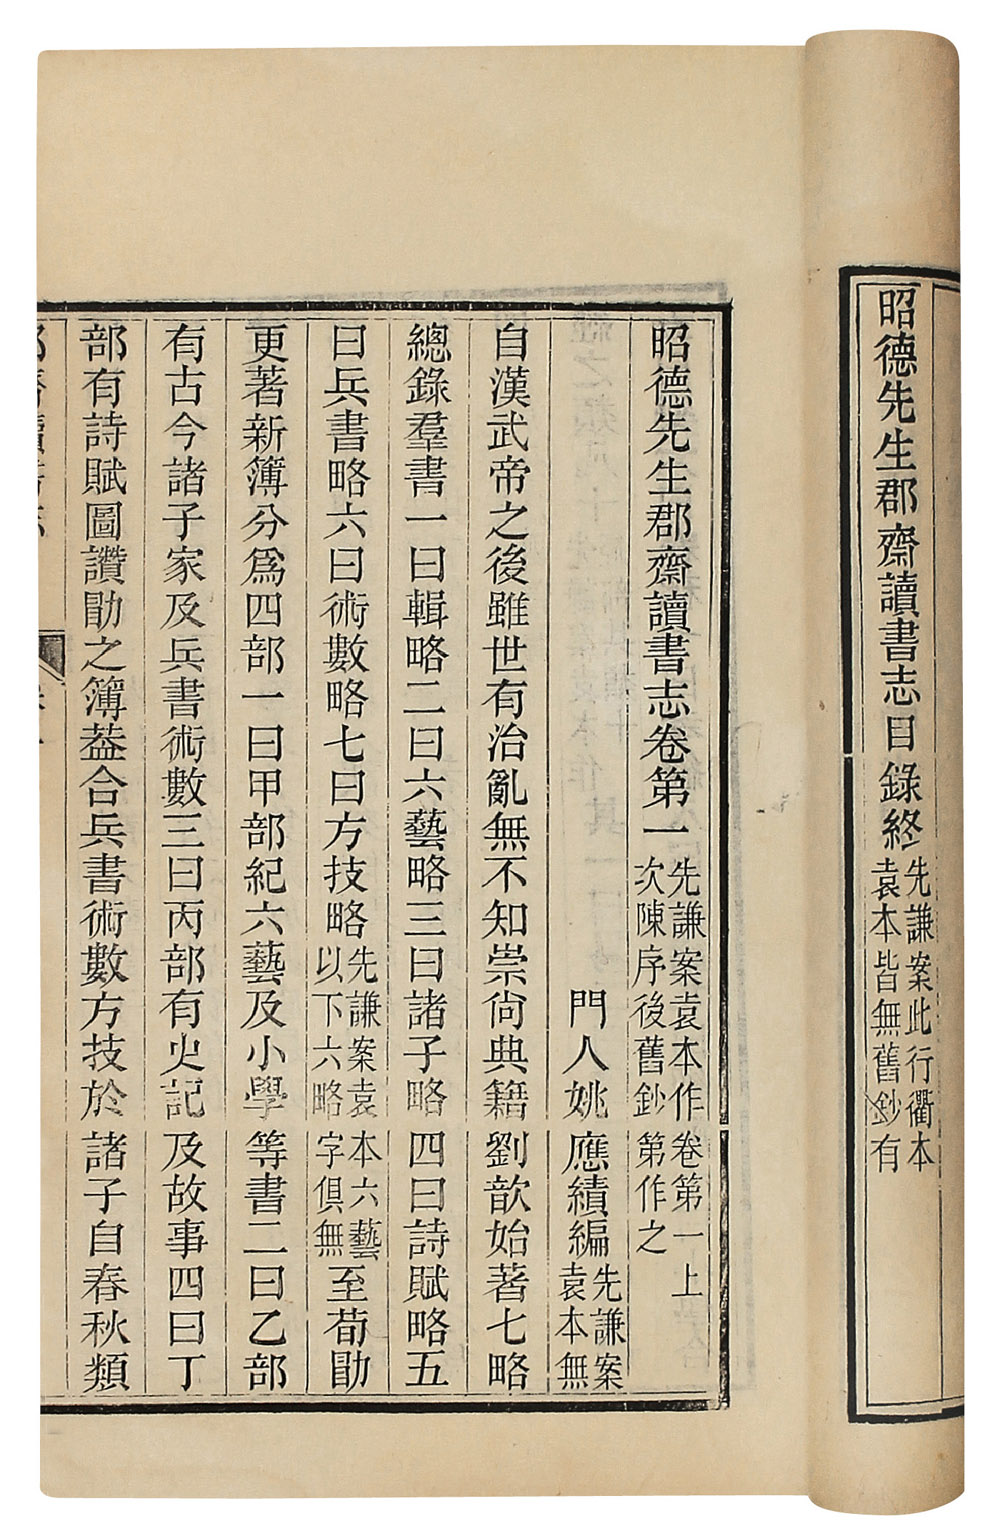 昭德先生郡齋讀書志目錄終先謙案此行衢本袁本皆無舊鈔有
昭德先生郡齋讀書志卷第一先謙案袁本作卷第一上次陳序後舊鈔第作之
門人姚應績編先謙案袁本無
自漢武帝之後雖世有治亂無不知崇尙典籍劉歆始著七略
總錄羣書一曰輯略二曰六藝略三曰諸子略四曰詩賦略五
曰兵書略六曰術數略七曰方技略先謙案袁本六藝以下六略字俱無至荀勖
更著新簿分爲四部一曰甲部紀六藝及小學等書二曰乙部
有古今諸子家及兵書術數三曰丙部有史記及故事四曰丁
部有詩賦圖讚勖之簿葢合兵書術數方技於諸子自春秋類